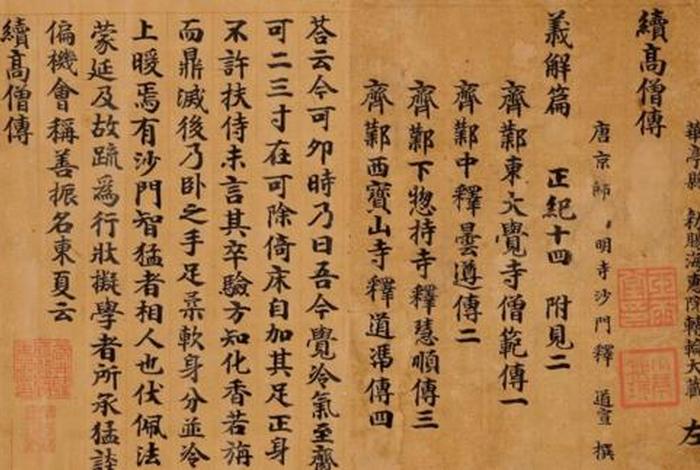 轉輪大藏 左
續高僧傳
唐京師 明寺沙門釋 道宣 撰
義解篇 正紀十四 附見二
齊鄴東大覺寺僧範傳一
齊鄴中釋曇遵傳二
齊鄴下惣持寺釋慧順傳三
齊鄴西寶山寺釋道馮傳四
荅云今可卯時乃曰吾今覺冷氣至齋
可二三寸在可除倚床自加其足正身
不許扶侍未言其卒驗方知化香若旃
而鼎滅後乃卧之手足柔軟身分並冷
上暖焉有沙門智猛者相人也伏佩法
蒙延及故疏爲行狀擬學者所承猛談
偏機會稱善振名東夏云
續高僧傳